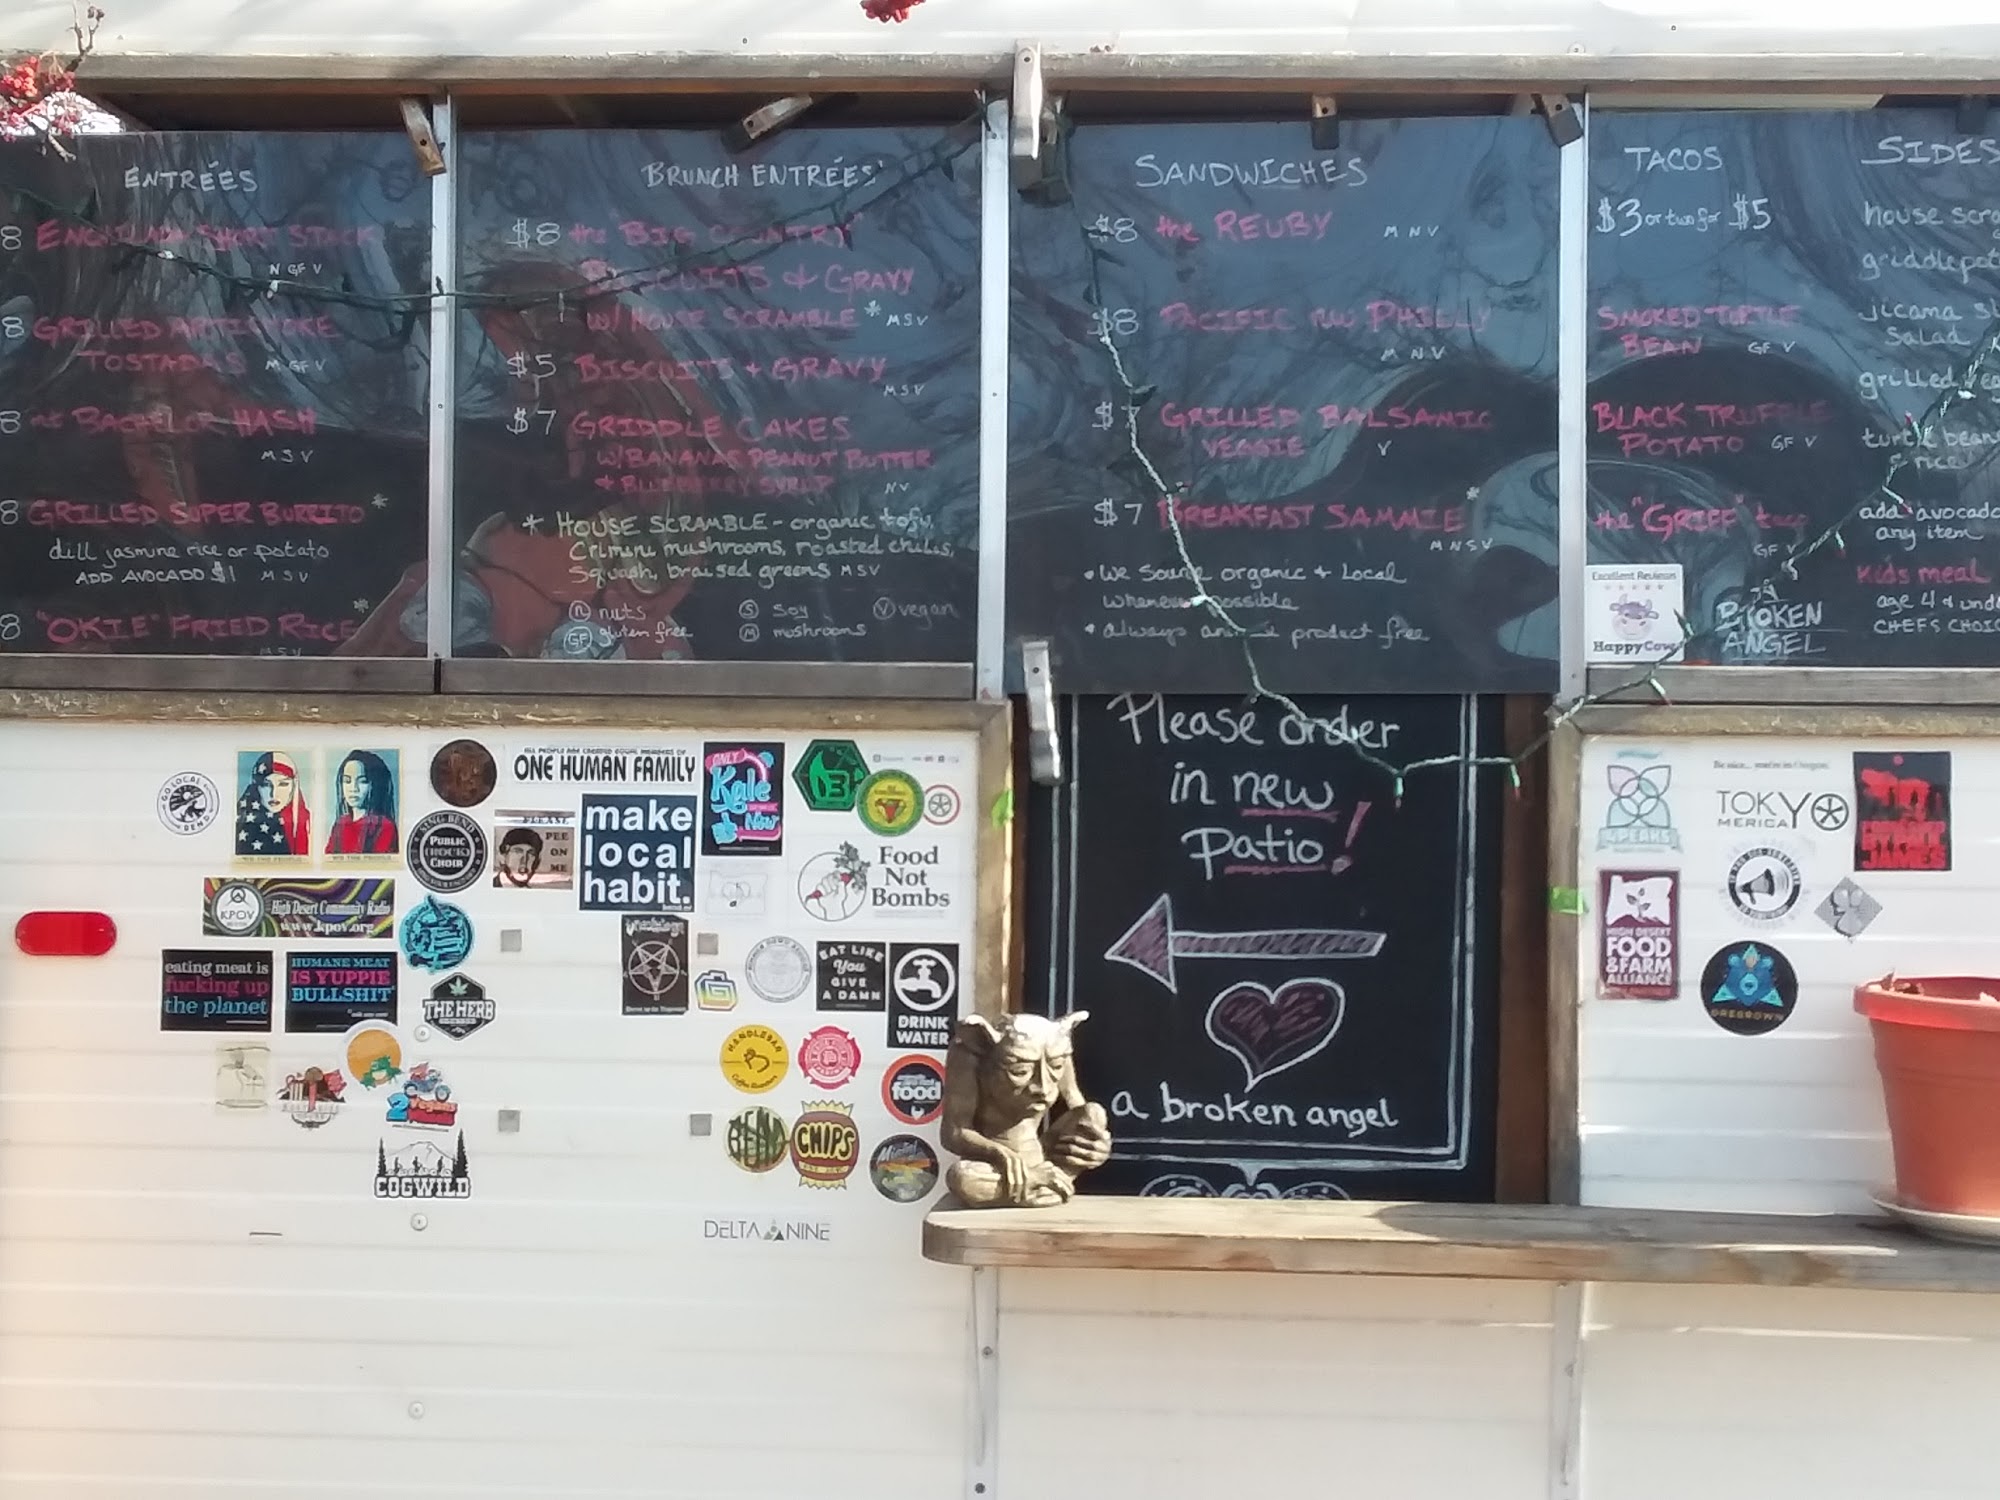 ENTRÉES
8 ENCHILADA SHORT STACK
N GF V
8 GRILLED ARTICHOKE
TOSTADAS M GF V
8 BACHELOR HASH
M S V
8 GRILLED SUPER BURRITO *
dill jasmine rice or potato
ADD AVOCADO $1 M S V
8 "OKIE" FRIED RICE *
M S V
BRUNCH ENTRÉES
$8 the "BIG COUNTRY"
BISCUITS & GRAVY
W/ HOUSE SCRAMBLE * M S V
$5 BISCUITS + GRAVY
M S V
$7 GRIDDLE CAKES
W/ BANANAS PEANUT BUTTER
+ BLUEBERRY SYRUP N V
* HOUSE SCRAMBLE - organic tofu,
Crimini mushrooms, roasted chilis,
Squash, braised greens M S V
N nuts
S Soy
V vegan
GF gluten free
M mushrooms
SANDWICHES
$8 the REUBY M N V
$8 PACIFIC NW PHILLY
M N V
$7 GRILLED BALSAMIC
VEGGIE V
$7 BREAKFAST SAMMIE *
M N S V
• We source organic + Local
whenever possible
• always animal product free
TACOS
$3 or two for $5
SMOKED TURTLE
BEAN GF V
BLACK TRUFFLE
POTATO GF V
the "GRIFF" taco
GF V
Excellent Reviews
HappyCow
BROKEN
ANGEL
SIDES
house scra
griddle pot
jicama sl
Salad
grilled
turtle bean
& rice
add avocado
any item
Kids meal
age 4 & und
CHEFS CHOIC
Please order
in new
Patio!
a broken angel
GO LOCAL
BEND
WE THE PEOPLE
WE THE PEOPLE
ALL PEOPLE ARE CREATED EQUAL MEMBERS OF
ONE HUMAN FAMILY
ONLY
Kale
Now
SING BEND
PUBLIC
(ROCK)
CHOIR
PLEASE
PEE
ON
ME
make
local
habit.
Food
Not
Bombs
KPOV
High Desert Community Radio
www.kpov.org
eating meat is
fucking up
the planet
HUMANE MEAT
IS YUPPIE
BULLSHIT*
THE HERB
EAT LIKE
You
GIVE
A DAMN
DRINK
WATER
HANDLEBAR
food
2 Vegans
BEND
CHIPS
COGWILD
DELTA NINE
4 PEAKS
Be nice... you're in Oregon.
TOKYO
MERICA
JAMES
HIGH DESERT
FOOD
& FARM
ALLIANCE
DREBROWN